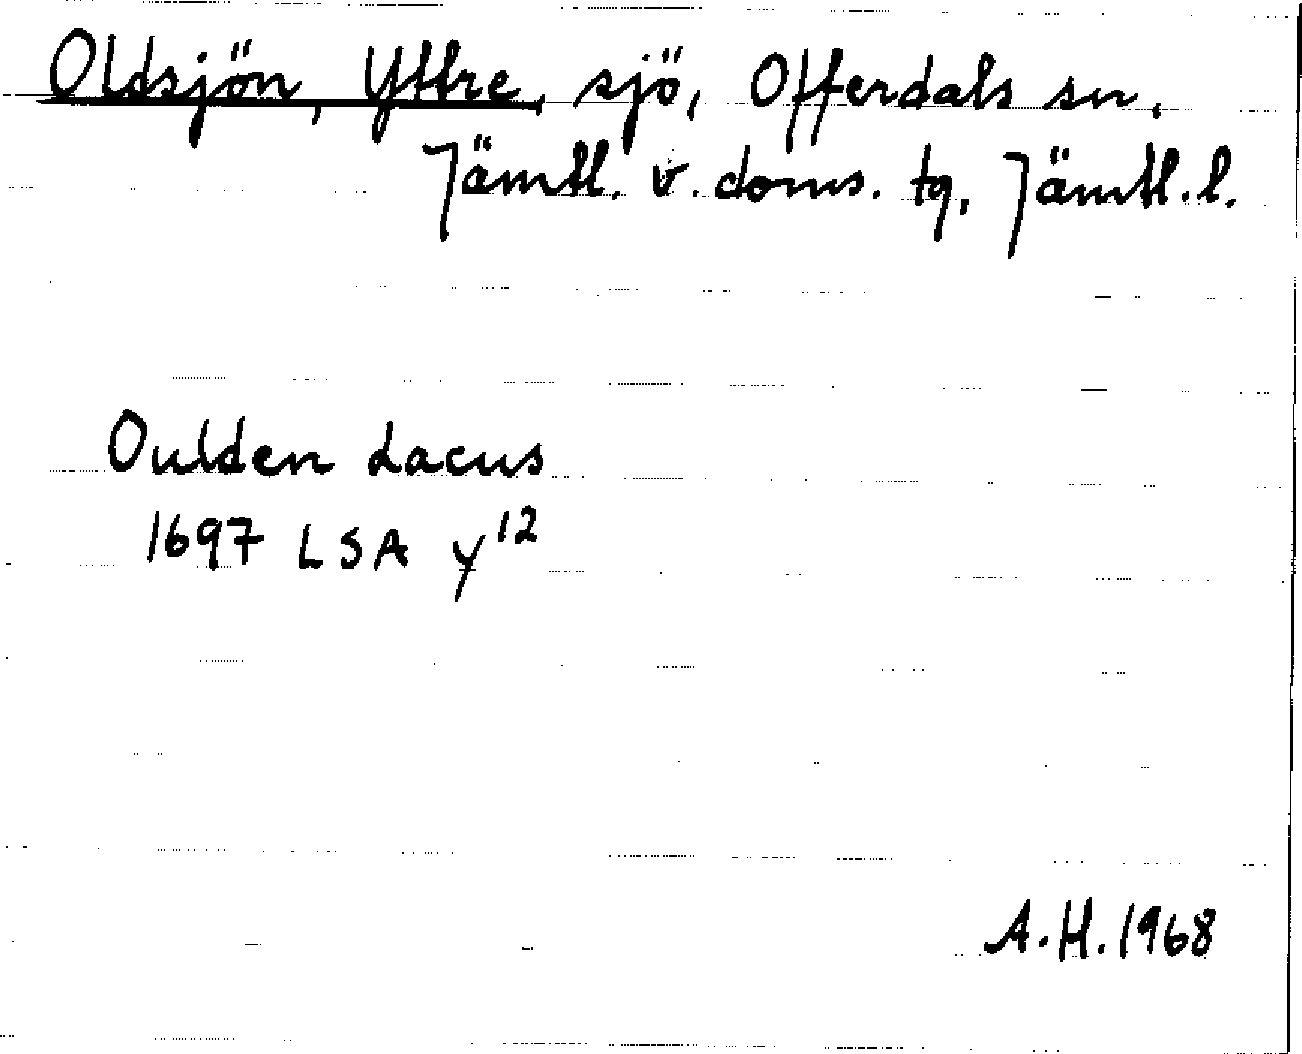 Oldsjön, Yttre, sjö, Offerdals sn,
Jämtl. v. doms. tg, Jämtl. l.
Oulden Lacus
1697 LSA y12
A.H. 1968